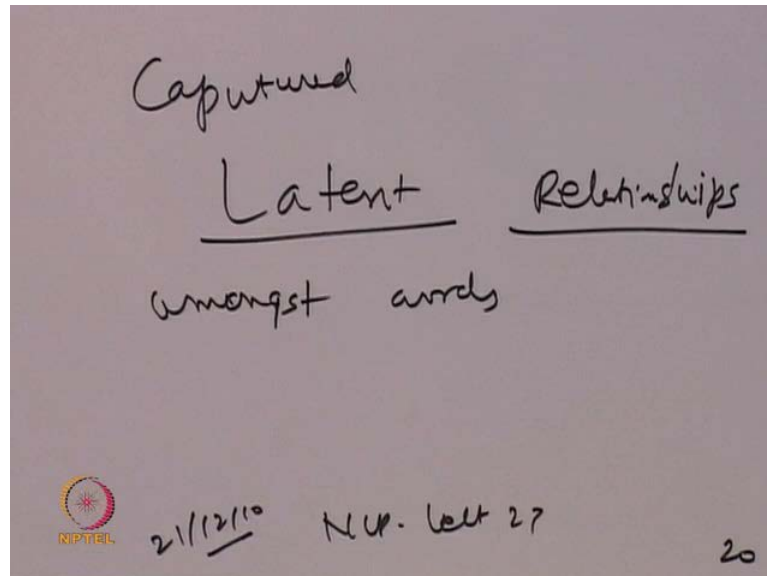 Caputured
Latent Relationships
amongst words
NPTEL 21/12/10 NLP. Lect 27
20